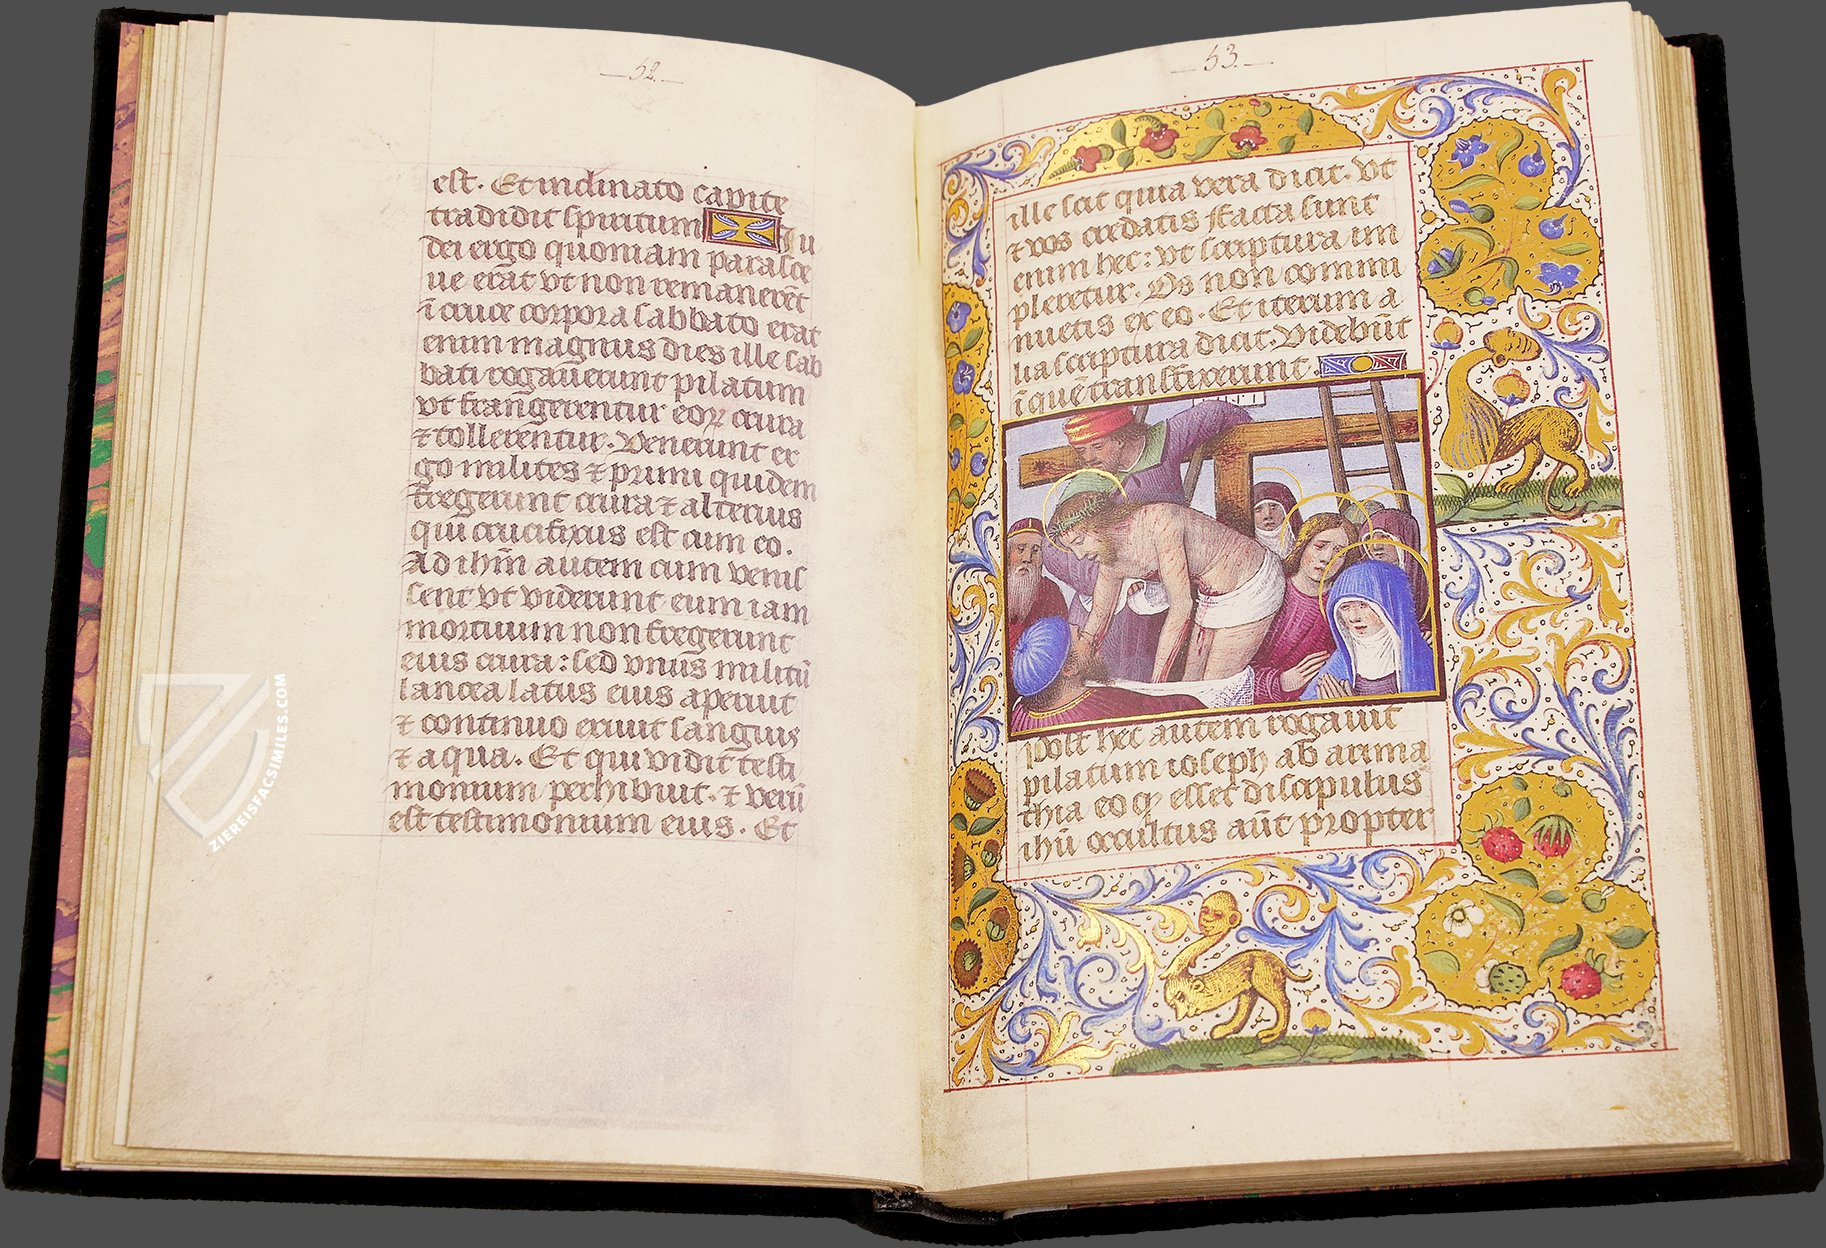 52.
est. Et inclinato capite
tradidit spiritum Iu
dei ergo quoniam parasce
ue erāt vt non remanerēt
ī cruce corpora sabbato erat
enim magnus dies ille sab
bati rogauerunt pilatum
vt frangerentur eoꝝ crura
⁊ tollerentur. Venerunt er
go milites ⁊ primi quidem
fregerunt crura ⁊ alterius
qui crucifixus est cum eo.
Ad ihm̄ autem cum venis
sent vt viderunt eum iam
mortuum non fregerunt
eius crura: sed vnus militū
lancea latus eius aperuit
⁊ continuo exiuit sanguis
⁊ aqua. Et qui vidit testi
monium perhibuit. ⁊ verū
est testimonium eius. Et
53.
ille scit quia vera dicit. Vt
⁊ vos credatis ffacta sunt
enim hec: vt scriptura im
pleretur. Os non commi
nuetis ex eo. Et iterum a
lia scriptura dicit. Videbūt
ī quē transfixerunt.
post hec autem rogauit
pilatum ioseph ab arima
thia eo qꝫ esset discipulus
ihū occultus aūt propter
ZIEREISFACSIMILES.COM